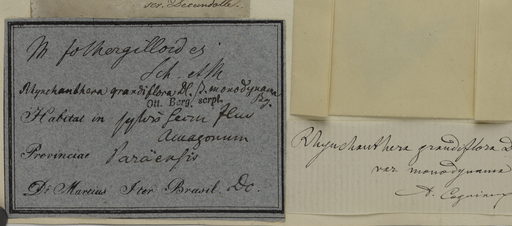 ser. Decandolle.
M fothergilloides
Sch et M
Rhynchanthera grandiflora Dl. β. monodynama
Bg.
Ott. Berg. scrpt.
Habitat in sylvis secus fluv
Amazonum
Provinciae Paraënsis
Dr Martius Iter Brasil. Dc.
Rhynchanthera grandiflora D
var monodynama
A. Cogniaux